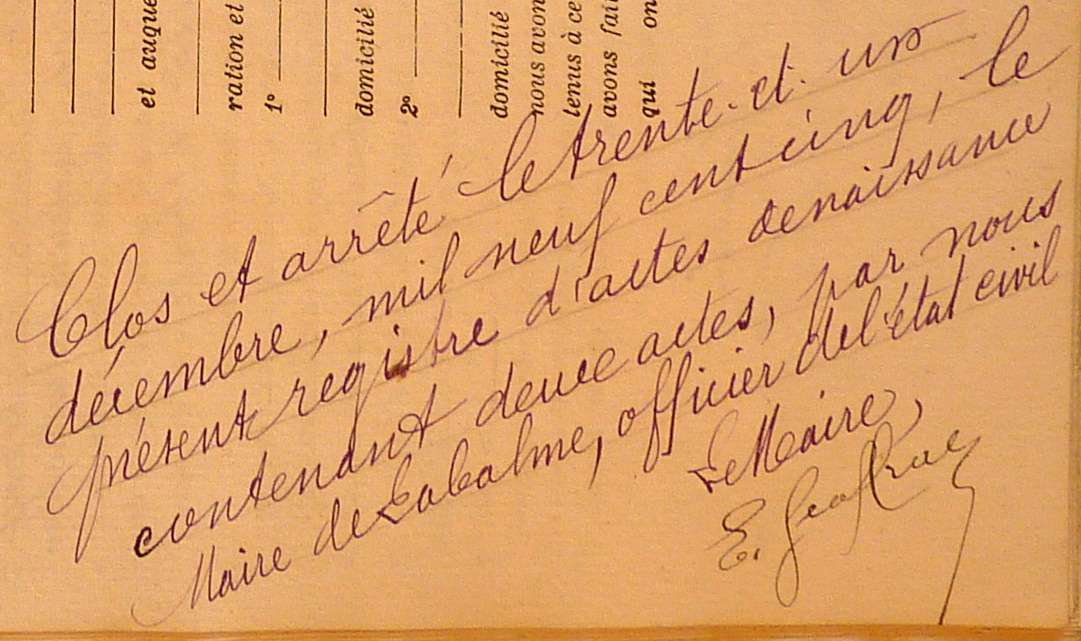 et auque
ration et
1º
domicilié
2º
domicilié
nous avon
tenus à ce
avons fai
qui on
Clos et arrêté le trente-et-un
décembre, mil neuf cent cinq, le
présent registre d'actes de naissance
contenant deux actes, par nous
Maire de Labalme, officier de l'état civil
Le Maire,
E. Geoffray